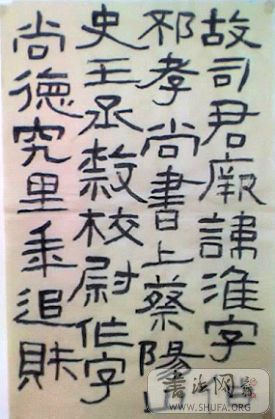 故司君廟諱淮字
邪孝尚書上蔡陽
史王丞校尉作字
尚德究里乗追財
WWW.SHUFA.ORG